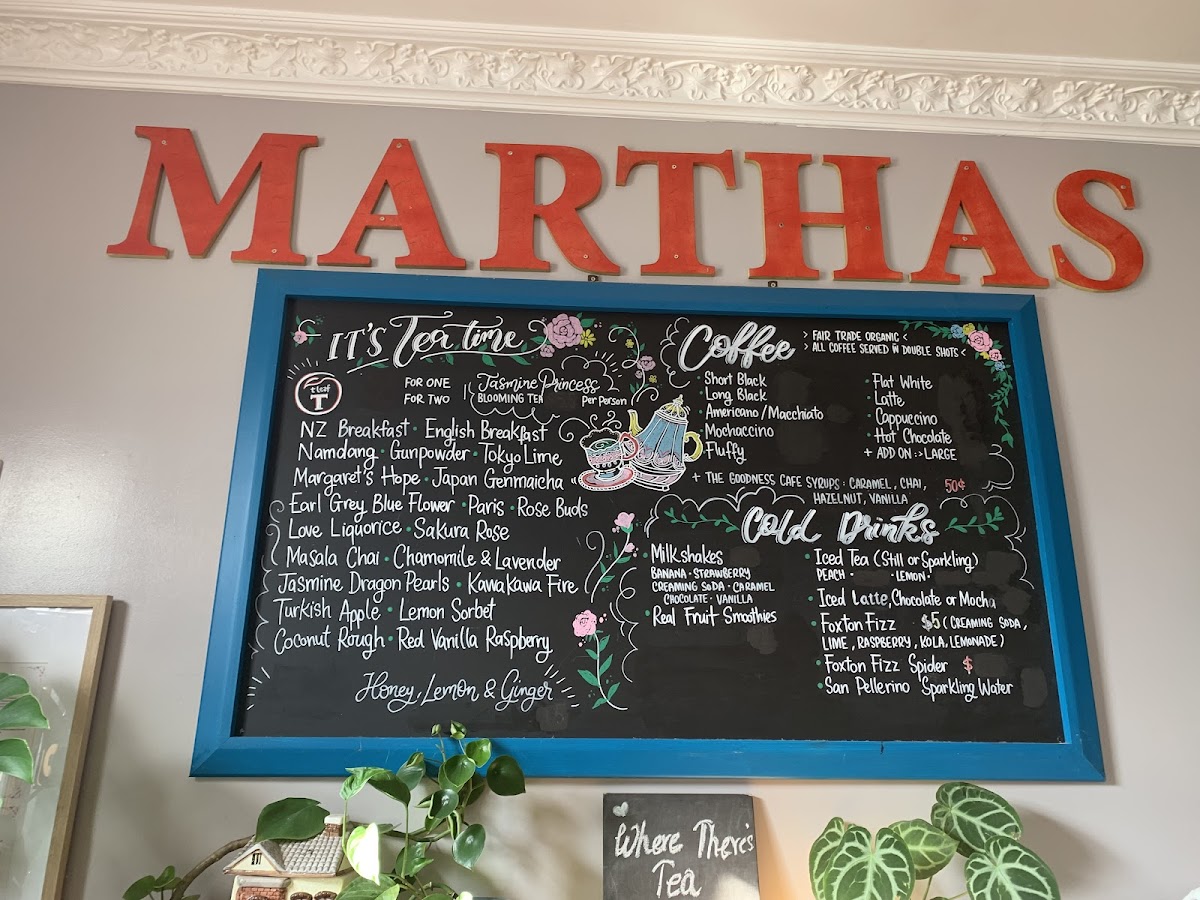 MARTHAS
IT'S Tea time
t leaf
T
FOR ONE
FOR TWO
Jasmine Princess
BLOOMING TEA Per Person
NZ Breakfast • English Breakfast
Namdang • Gunpowder • Tokyo Lime
Margaret's Hope • Japan Genmaicha
Earl Grey Blue Flower • Paris • Rose Buds
Love Liquorice • Sakura Rose
Masala Chai • Chamomile & Lavender
Jasmine Dragon Pearls • Kawakawa Fire
Turkish Apple • Lemon Sorbet
Coconut Rough • Red Vanilla Raspberry
Honey, Lemon, & Ginger
Coffee
> FAIR TRADE ORGANIC <
> ALL COFFEE SERVED W DOUBLE SHOTS <
• Short Black
• Long Black
• Americano/Macchiato
• Mochaccino
• Fluffy
• Flat White
• Latte
• Cappuccino
• Hot Chocolate
+ ADD ON :> LARGE
+ THE GOODNESS CAFE SYRUPS : CARAMEL, CHAI,
HAZELNUT, VANILLA
50¢
Cold Drinks
• Milkshakes
BANANA • STRAWBERRY
CREAMING SODA • CARAMEL
CHOCOLATE • VANILLA
• Real Fruit Smoothies
• Iced Tea (Still or Sparkling)
PEACH • • LEMON •
• Iced Latte, Chocolate or Mocha
• Foxton Fizz $5 (CREAMING SODA,
LIME, RASPBERRY, KOLA, LEMONADE)
• Foxton Fizz Spider $
• San Pellerino Sparkling Water
Where There's
Tea